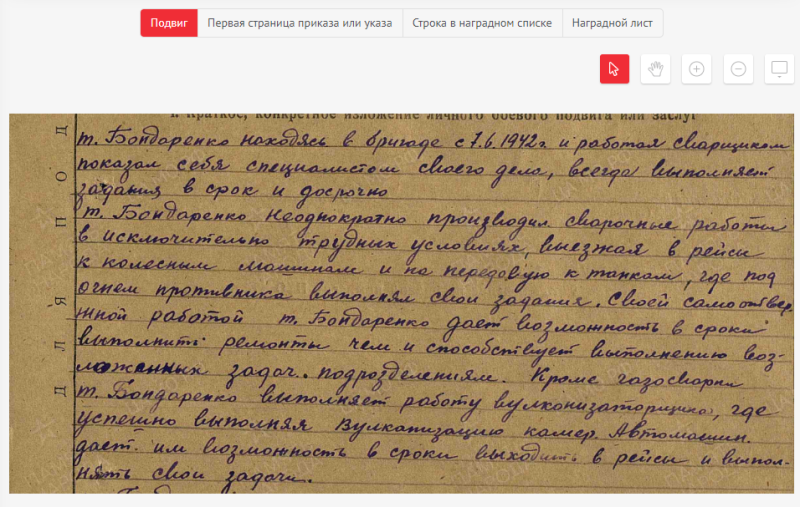 Подвиг Первая страница приказа или указа Строка в наградном списке Наградной лист
I. Краткое, конкретное изложение личного боевого подвига или заслуг
ДЛЯ ПОД
т. Бондаренко находясь в бригаде с 7.6.1942г. и работая сварщиком
показал себя специалистом своего дела, всегда выполняет
задания в срок и досрочно
т. Бондаренко неоднократно производил сварочные работы
в исключительно трудных условиях, выезжая в рейсы
к колесным машинам и на передовую к танкам, где под
огнем противника выполнял свои задания. Своей самоотвер-
жной работой т. Бондаренко дает возможность в сроки
выполнить ремонты чем и способствует выполнению воз-
ложенных задач. подразделениям. Кроме газосварки
т. Бондаренко выполняет работу вулконизаторщика, где
успешно выполняя вулканизацию камер. Автомашин.
дает. им возможность в сроки выходить в рейсы и выпол-
нять свои задачи.